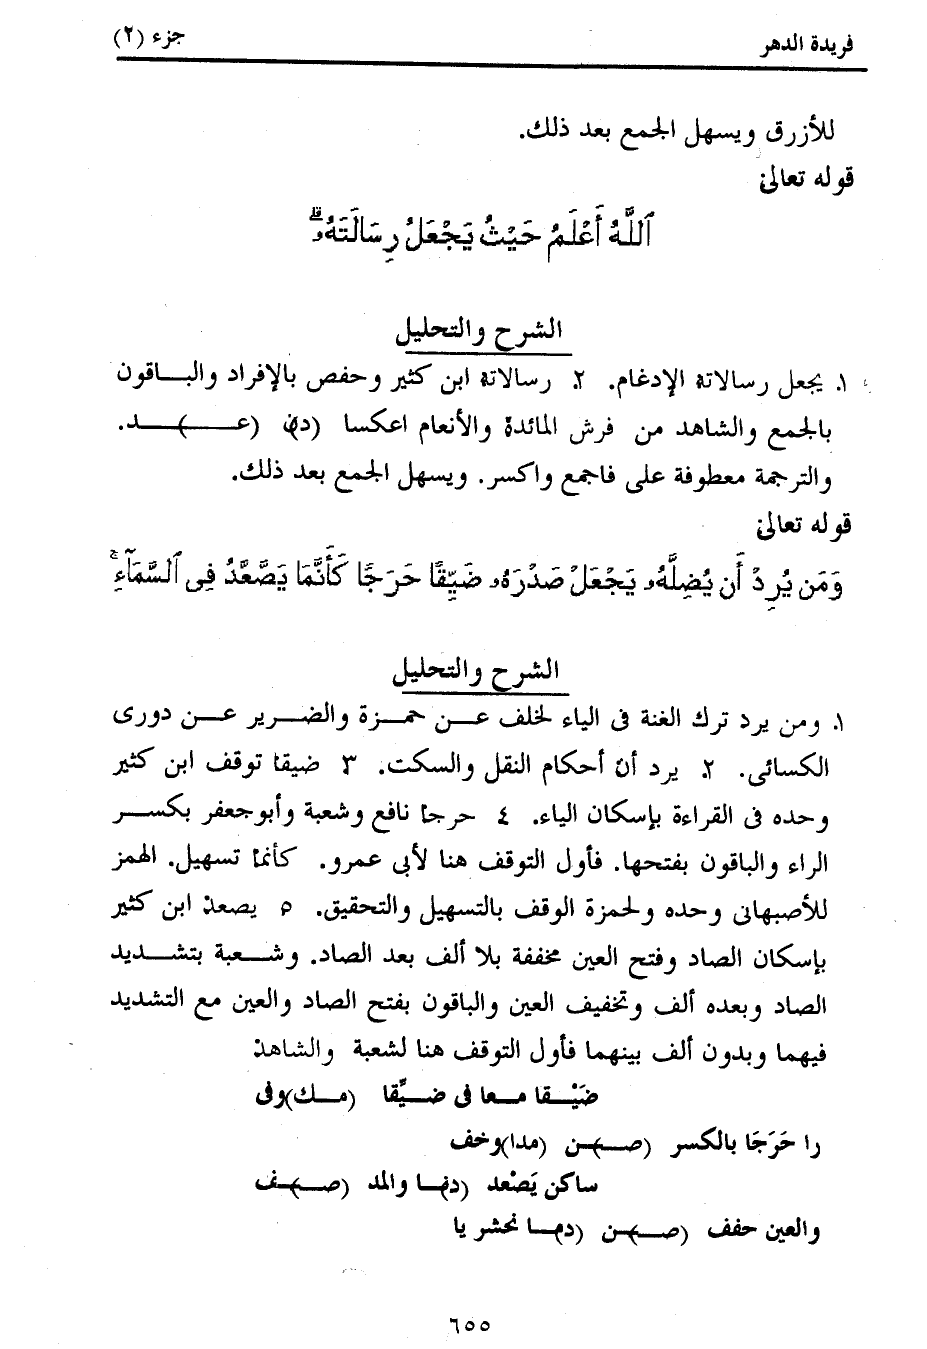 فريدة الدهر
جزء (٢)
للأزرق ويسهل الجمع بعد ذلك.
قوله تعالى
ٱللَّهُ أَعْلَمُ حَيْثُ يَجْعَلُ رِسَالَتَهُۥۗ
الشرح والتحليل
١. يجعل رسالاتة الإدغام. ٢. رسالاتة ابن كثير وحفص بالإفراد والباقون
بالجمع والشاهد من فرش المائدة والأنعام اعكسا (د)ن (عـ)ـد.
والترجمة معطوفة على فاجمع واكسر. ويسهل الجمع بعد ذلك.
قوله تعالى
وَمَن يُرِدْ أَن يُضِلَّهُۥ يَجْعَلْ صَدْرَهُۥ ضَيِّقًا حَرَجًا كَأَنَّمَا يَصَّعَّدُ فِى ٱلسَّمَآءِۚ
الشرح والتحليل
١. ومن يرد ترك الغنة فى الياء لخلف عن حمزة والضرير عن دورى
الكسائى. ٢. يرد أن أحكام النقل والسكت. ٣ ضيقا توقف ابن كثير
وحده فى القراءة بإسكان الياء. ٤ حرجا نافع وشعبة وأبو جعفر بكسر
الراء والباقون بفتحها. فأول التوقف هنا لأبى عمرو. كأنما تسهيل. الهمز
للأصبهانى وحده ولحمزة الوقف بالتسهيل والتحقيق. ٥ يصعد ابن كثير
بإسكان الصاد وفتح العين مخففة بلا ألف بعد الصاد. وشعبة بتشديد
الصاد وبعده ألف وتخفيف العين والباقون بفتح الصاد والعين مع التشديد
فيهما وبدون ألف بينهما فأول التوقف هنا لشعبة والشاهد
ضَيْقا معا فى ضيِّقا (مـك)وفى
را حَرَجَا بالكسر (صـ)ـن (مدا)وخف
ساكن يَصْعد (د)نـا والمد (صـ)ـف
والعين خفف (صـ)ـن (د)مـا نحشر يا
٦٥٥